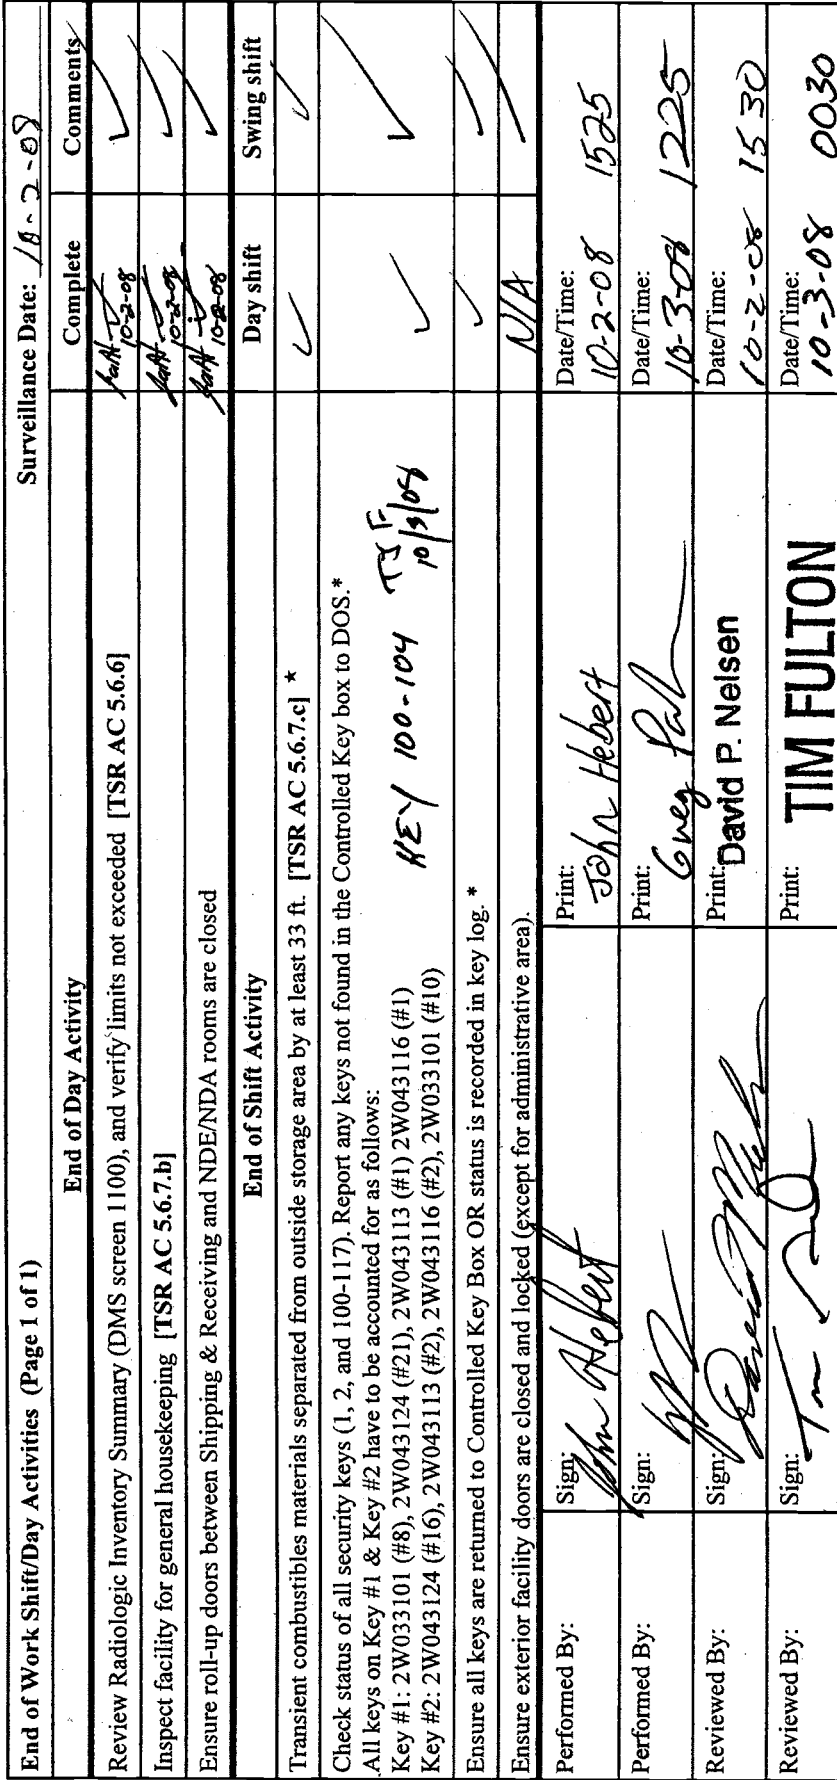 End of Work Shift/Day Activities (Page 1 of 1) Surveillance Date: 10-2-08
End of Day Activity Complete Comments
Review Radiologic Inventory Summary (DMS screen 1100), and verify limits not exceeded [TSR AC 5.6.6] 10-2-08 ✓
Inspect facility for general housekeeping [TSR AC 5.6.7.b] 10-2-08 ✓
Ensure roll-up doors between Shipping & Receiving and NDE/NDA rooms are closed 10-2-08 ✓
End of Shift Activity Day shift Swing shift
Transient combustibles materials separated from outside storage area by at least 33 ft. [TSR AC 5.6.7.c] * ✓ ✓
Check status of all security keys (1, 2, and 100-117). Report any keys not found in the Controlled Key box to DOS.*
All keys on Key #1 & Key #2 have to be accounted for as follows: KEY 100-104 TJF 10/3/08 ✓ ✓
Key #1: 2W033101 (#8), 2W043124 (#21), 2W043113 (#1) 2W043116 (#1)
Key #2: 2W043124 (#16), 2W043113 (#2), 2W043116 (#2), 2W033101 (#10)
Ensure all keys are returned to Controlled Key Box OR status is recorded in key log. * ✓ ✓
Ensure exterior facility doors are closed and locked (except for administrative area). N/A ✓
Performed By: Sign: John Hebert Print: John Hebert Date/Time: 10-2-08 1525
Performed By: Sign: Print: Greg Date/Time: 10-3-08 1225
Reviewed By: Sign: Print: David P. Nelsen Date/Time: 10-2-08 1530
Reviewed By: Sign: Print: TIM FULTON Date/Time: 10-3-08 0030